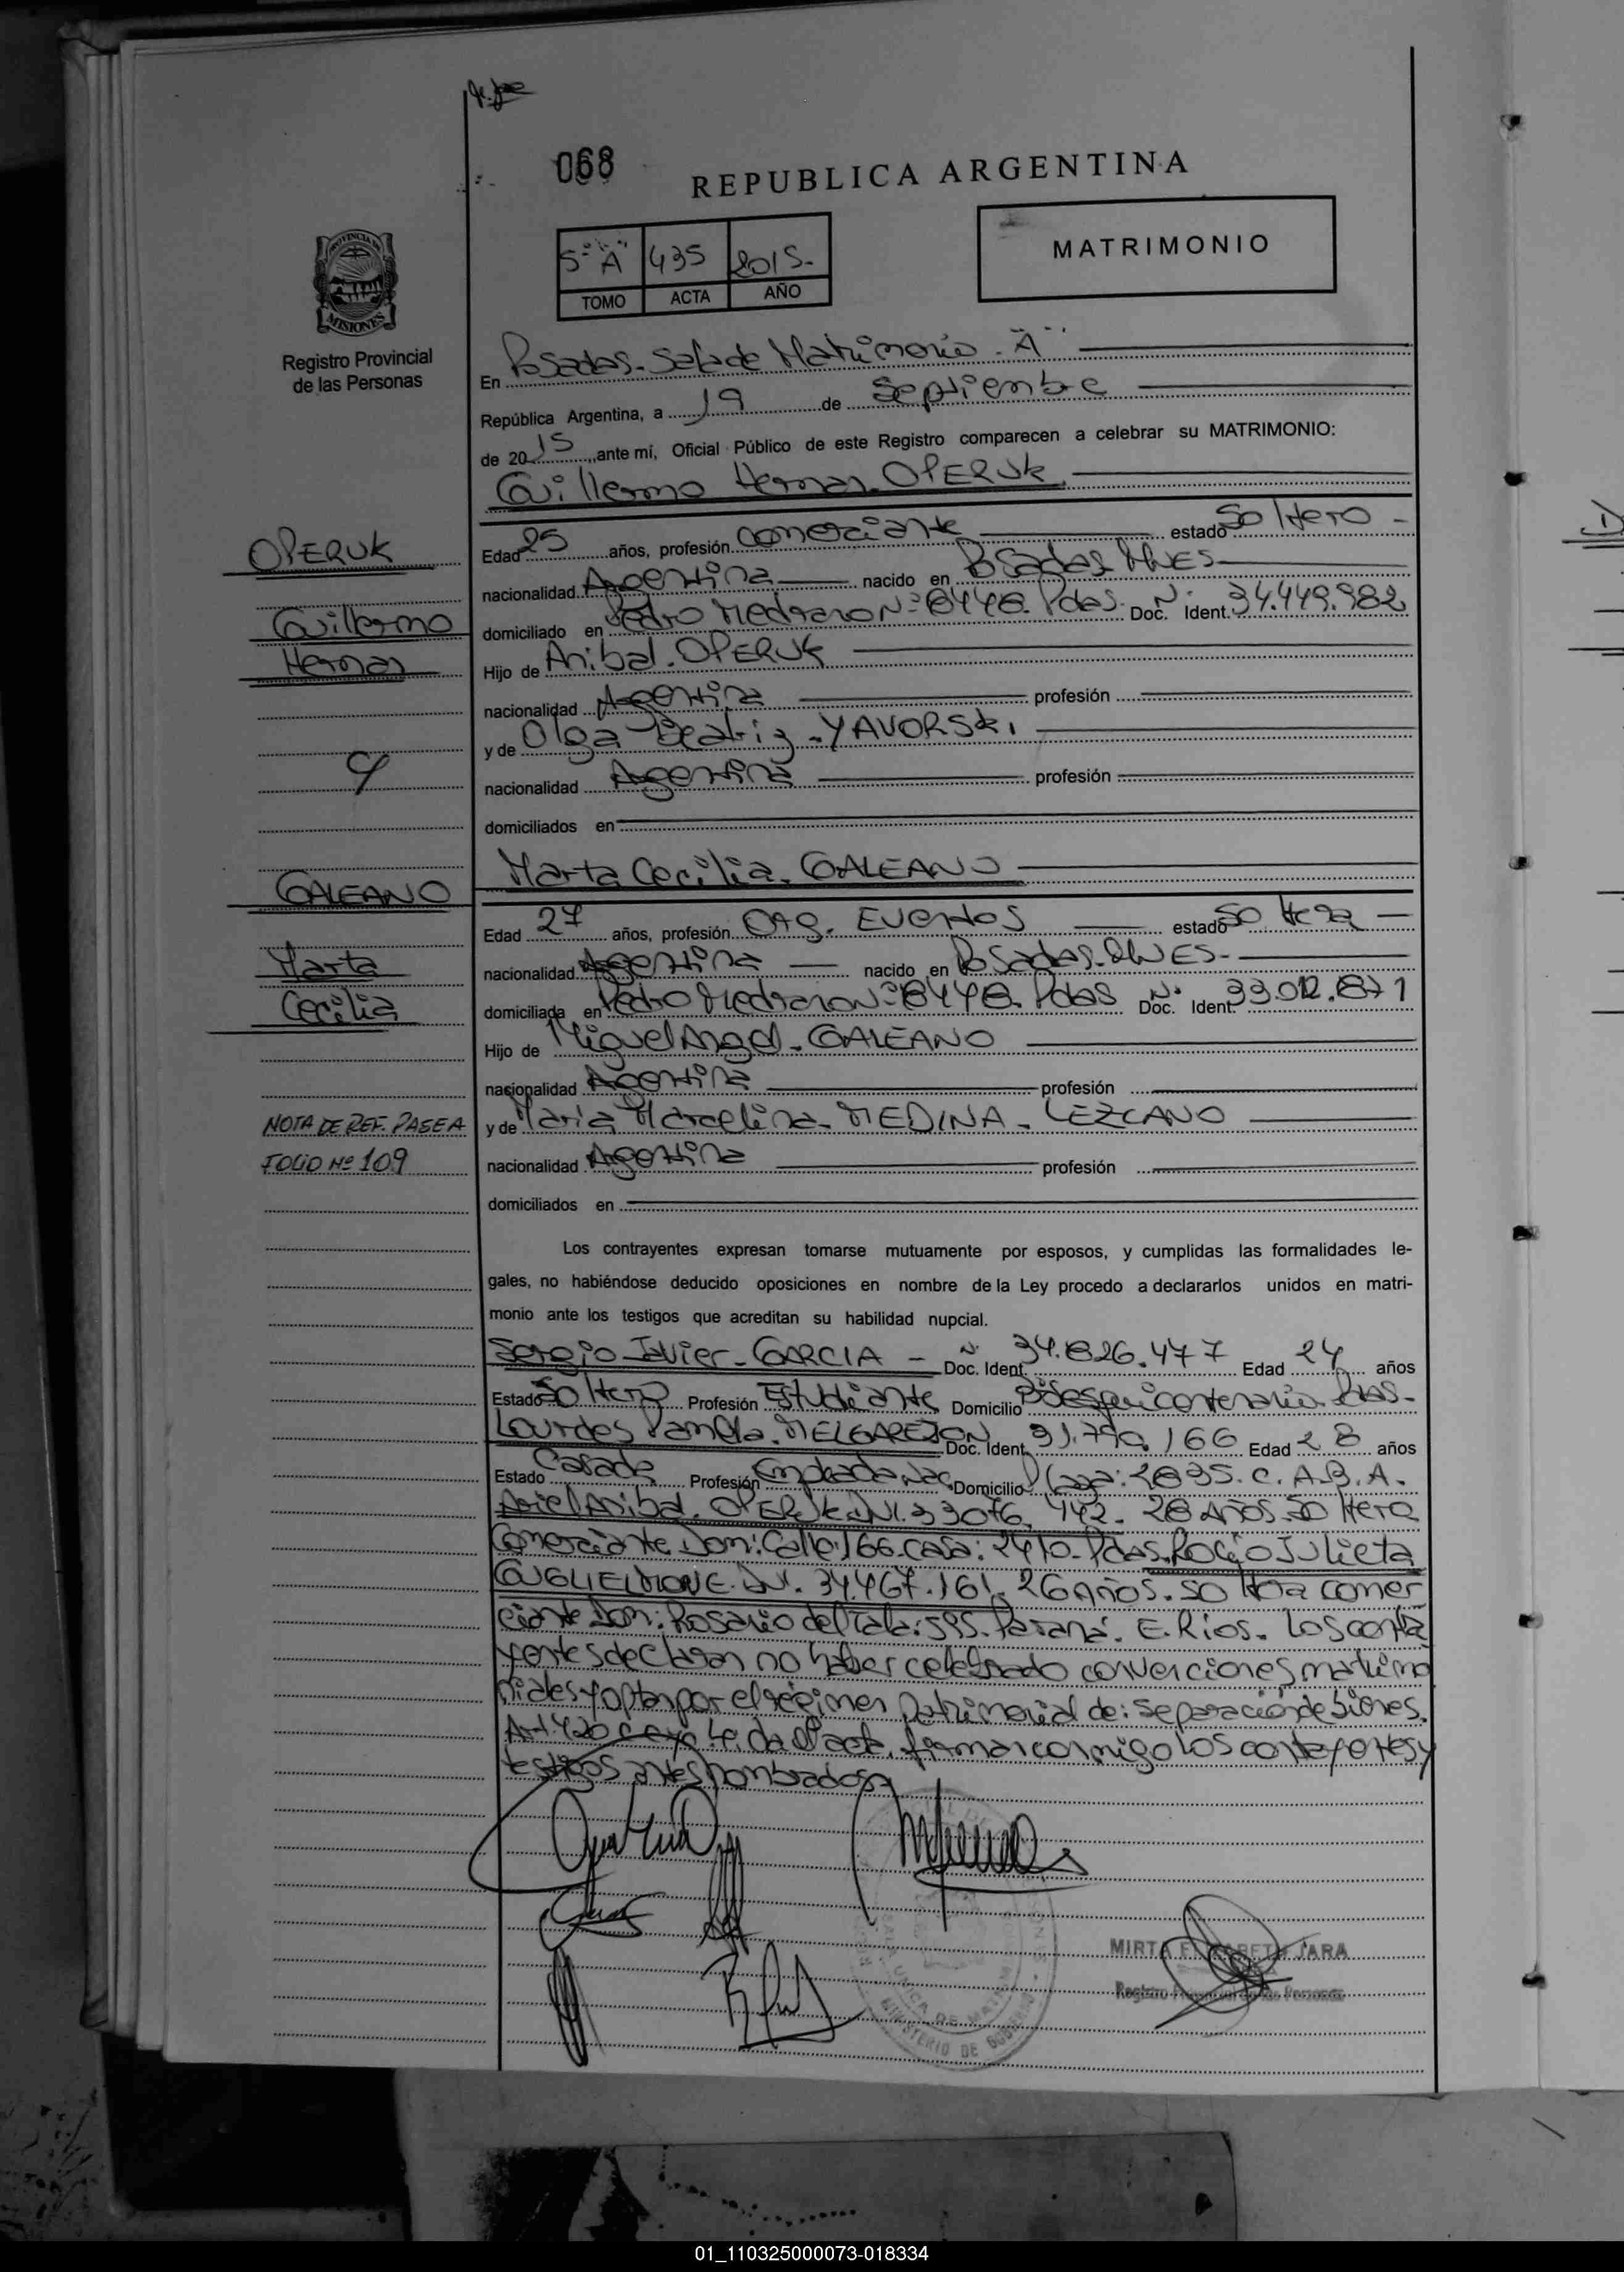 068
REPUBLICA ARGENTINA
5º "A" 435 2015.-
TOMO ACTA AÑO
MATRIMONIO
PROVINCIA DE MISIONES
Registro Provincial
de las Personas
En Posadas. Sala de Matrimonio. "A"
República Argentina, a 19 de Septiembre
de 2015, ante mí, Oficial Público de este Registro comparecen a celebrar su MATRIMONIO:
Guillermo Hernan. OPERUK.
OPERUK
Guillermo
Hernan
Edad 25 años, profesión comerciante estado Soltero -
nacionalidad Argentina nacido en Posadas. MNES
domiciliado en Pedro Medrano Nº 8448. Pdas. Doc. Nº Ident. 34.449.982
Hijo de Anibal. OPERUK
nacionalidad Argentina profesión
y de Olga Beatriz. YAVORSKI
nacionalidad Argentina profesión
domiciliados en
y
Marta Cecilia. GALEANO
GALEANO
Marta
Cecilia
Edad 27 años, profesión Org. Eventos estado Soltera -
nacionalidad Argentina nacido en Posadas. MNES.
domiciliada en Pedro Medrano Nº 8448. Pdas Nº Doc. Ident. 33.012.871
Hijo de Miguel Angel. GALEANO
nacionalidad Argentina profesión
y de Maria Marcelina. MEDINA. LEZCANO
nacionalidad Argentina profesión
domiciliados en
NOTA DE REF. PASE A
FOLIO Nº 109
Los contrayentes expresan tomarse mutuamente por esposos, y cumplidas las formalidades le-
gales, no habiéndose deducido oposiciones en nombre de la Ley procedo a declararlos unidos en matri-
monio ante los testigos que acreditan su habilidad nupcial.
Sergio Javier. GARCIA - Nº Doc. Ident. 34.826.477 Edad 24 años
Estado Soltero Profesión Estudiante Domicilio Bº Sesquicentenario. Pdas-
Lourdes Pamela. MELGAREJO Nº Doc. Ident. 31.790.166 Edad 28 años
Estado Casada Profesión Empleada Nac. Domicilio 2895. C.A.B.A.
Ariel Anibal. OPERUK. DNI. 33076.442. 28 Años. Soltero
Comerciante. Dom: Calle: 166. casa: 2410. Pdas. Rocio Julieta
GUGLIELMONE. DNI. 34.467.161. 26 Años. Soltera comer
ciante Dom: Rosario del Tala: 595. Parana. E. Rios. Los contra
yentes declaran no haber celebrado convenciones matrimo
niales y optan por el régimen patrimonial de: Separación de bienes.
Art 420 Leida el acta, firman conmigo los contrayentes y
testigos antes nombrados
MIRTA ELIZABETH JARA
Registro Provincial de las Personas
MINISTERIO DE GOBIERNO
01_110325000073-018334